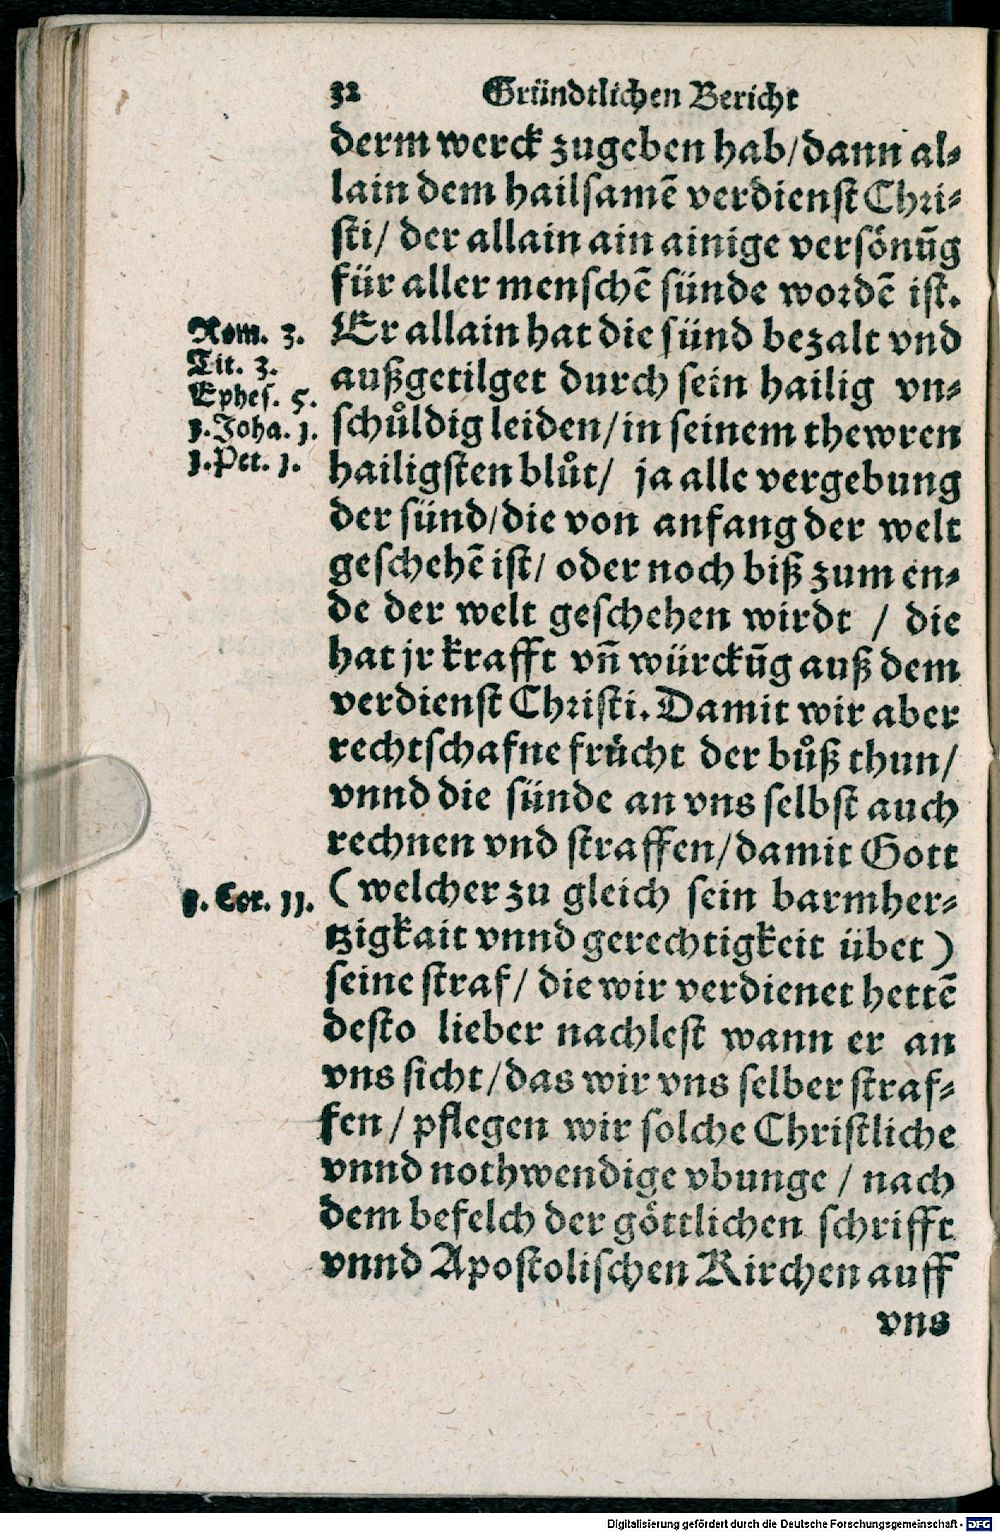 32 Gründtlichen Bericht
derm werck zugeben hab/dann al⸗
lain dem hailsamẽ verdienst Chri⸗
sti/ der allain ain ainige versönũg
für aller menschẽ sünde wordẽ ist.
Er allain hat die sünd bezalt vnd
außgetilget durch sein hailig vn⸗
schůldig leiden/in seinem thewren
hailigsten blůt/ ja alle vergebung
der sünd/die von anfang der welt
geschehẽ ist/ oder noch biß zum en⸗
de der welt geschehen wirdt / die
hat jr krafft vñ würckũg auß dem
verdienst Christi. Damit wir aber
rechtschafne frücht der bůß thun/
vnnd die sünde an vns selbst auch
rechnen vnd straffen/damit Gott
(welcher zu gleich sein barmher⸗
tzigkait vnnd gerechtigkeit übet)
seine straf/ die wir verdienet hettẽ
desto lieber nachlest wann er an
vns sicht/das wir vns selber straf⸗
fen/ pflegen wir solche Christliche
vnnd nothwendige vbunge / nach
dem befelch der göttlichen schrifft
vnnd Apostolischen Kirchen auff
vns
Rom. 3.
Tit. 3.
Ephes. 5.
1.Joha. 1.
1.Pet. 1.
1. Cor. 11.
Digitalisierung gefördert durch die Deutsche Forschungsgemeinschaft - DFG